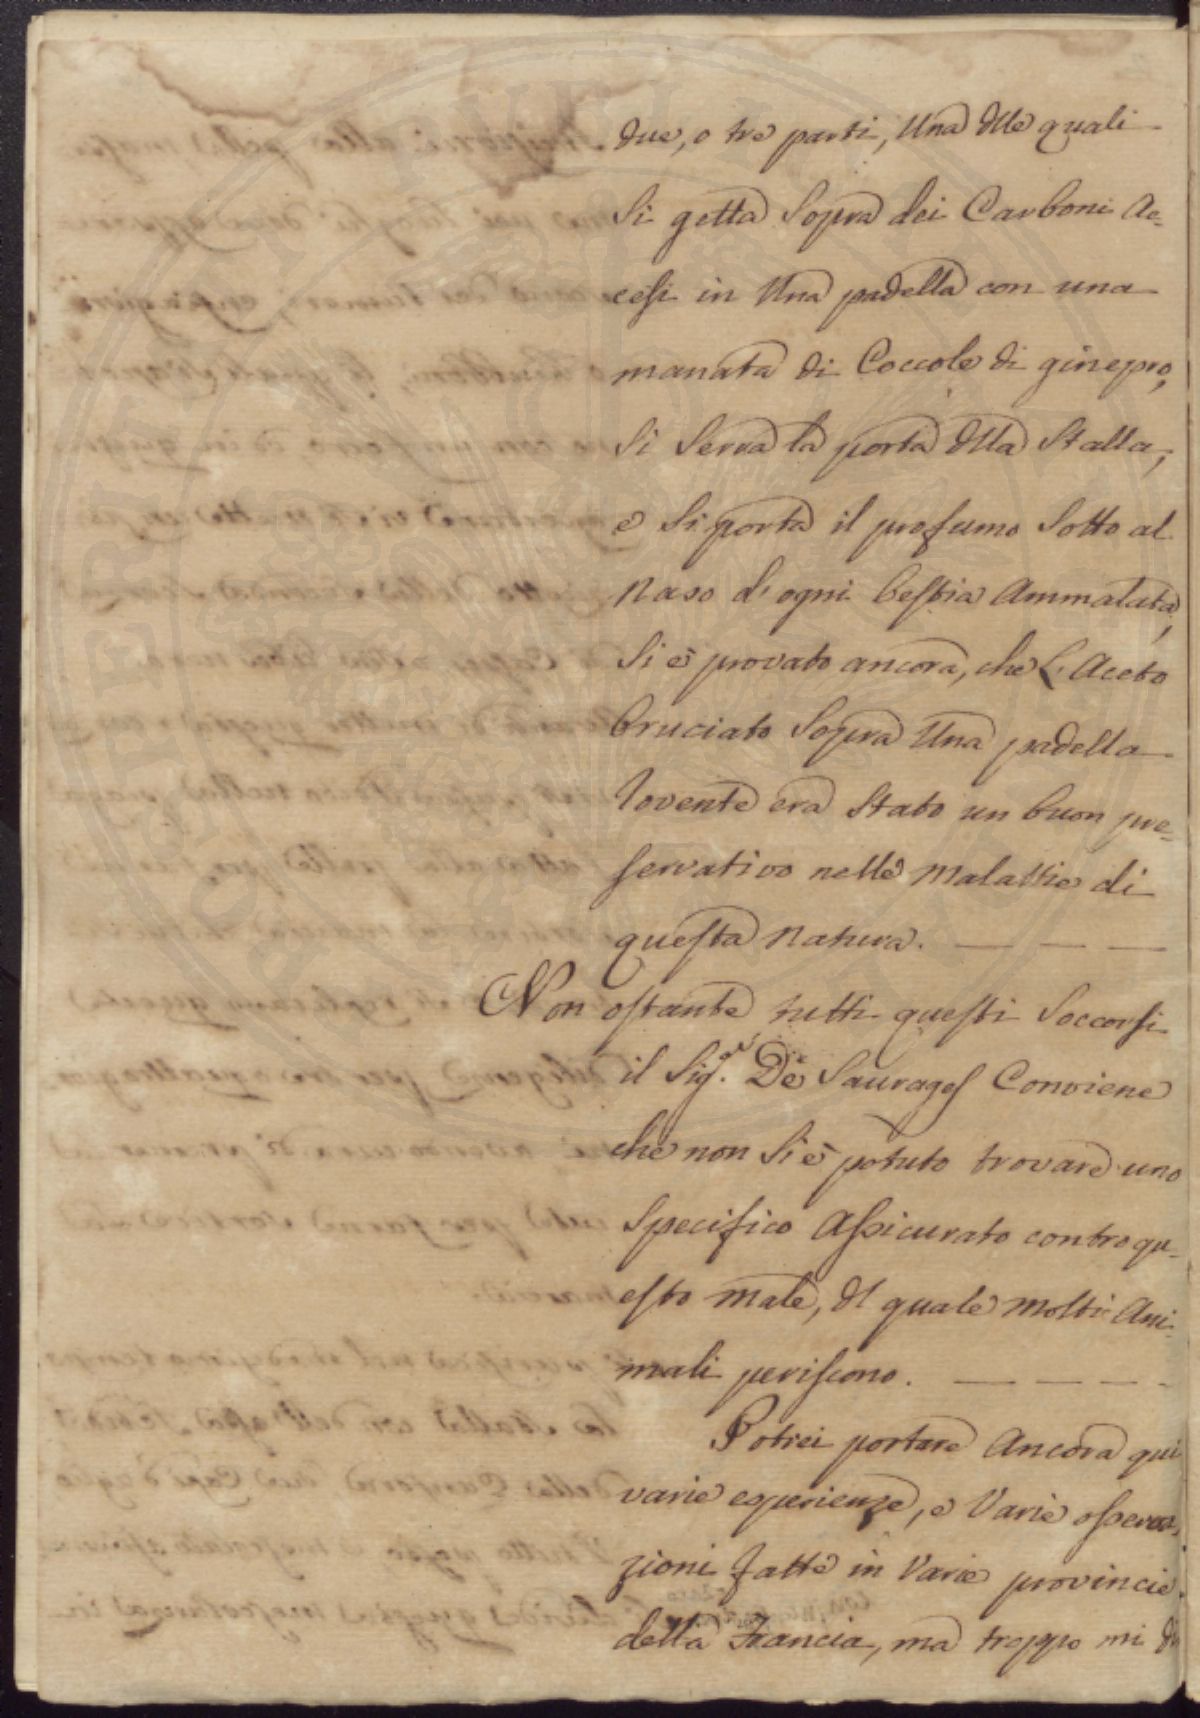 due, o tre parti, Una dlle quali
Si getta Sopra dei Carboni Ac=
cesi in Una padella con una
manata di Coccole di ginepro,
Si Serra la porta dlla Stalla,
e Si porta il profumo Sotto al
Naso d'ogni bestia Ammalata,
Si è provato ancora, che L'Aceto
bruciato Sopra Una padella
rovente era Stato un buon pre=
servativo nelle Malattie di
questa Natura. — — —
Non ostante tutti questi Soccorsi
il Sig.r De Sauvages Conviene
che non Si è potuto trovare uno
Specifico Assicurato contro qu=
esto male, dl quale Molti Ani=
mali periscono. — — — —
Potrei portare Ancora qui
varie esperienze, e Varie osserva=
zioni fatte in Varie provincie
della Francia, ma troppo mi